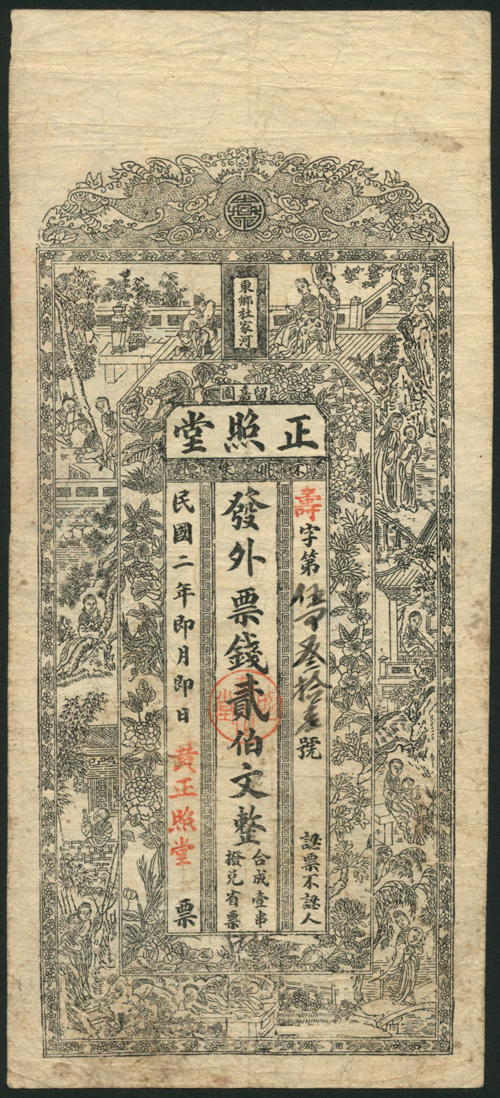 東鄉杜家河
正照堂
壽字第叁拾號
認票不認人
發外票錢貳伯文整
合成壹串
撥兌省票
民國二年即月即日 黃正照堂 票